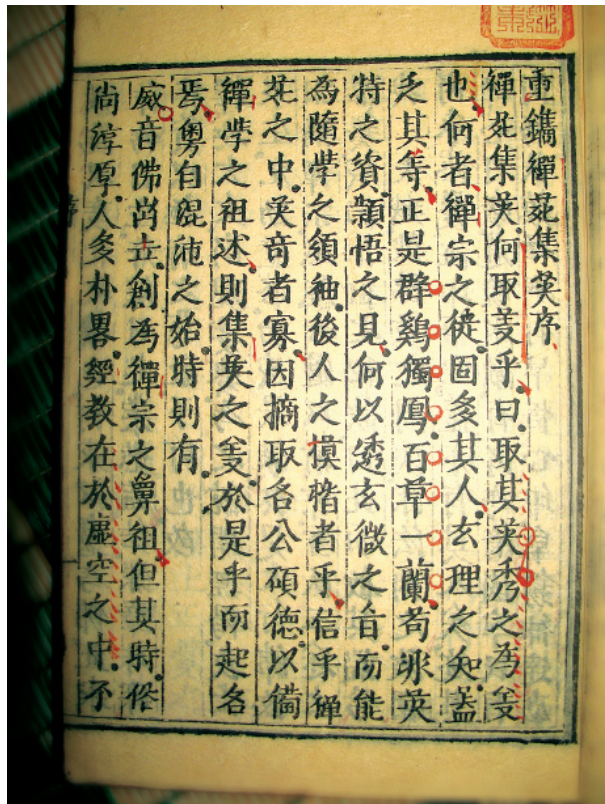 重鐫禪苑集英序
禪苑集英何取義乎曰取其英秀之爲義
也何者禪宗之徒固多其人玄理之知蓋
乏其等正是群鷄獨鳳百草一蘭苟非英
特之資頴悟之見何以透玄微之旨而能
為隨學之領袖後人之模楷者乎信乎禪
苑之中英奇者寡因摘取各公碩德以備
禪學之祖述則集英之義於是乎而起各
焉粵自混沌之始時則有
威音佛尚立創爲禪宗之鼻祖但其時俗
尚淳厚人多朴畧經教在於虛空之中不